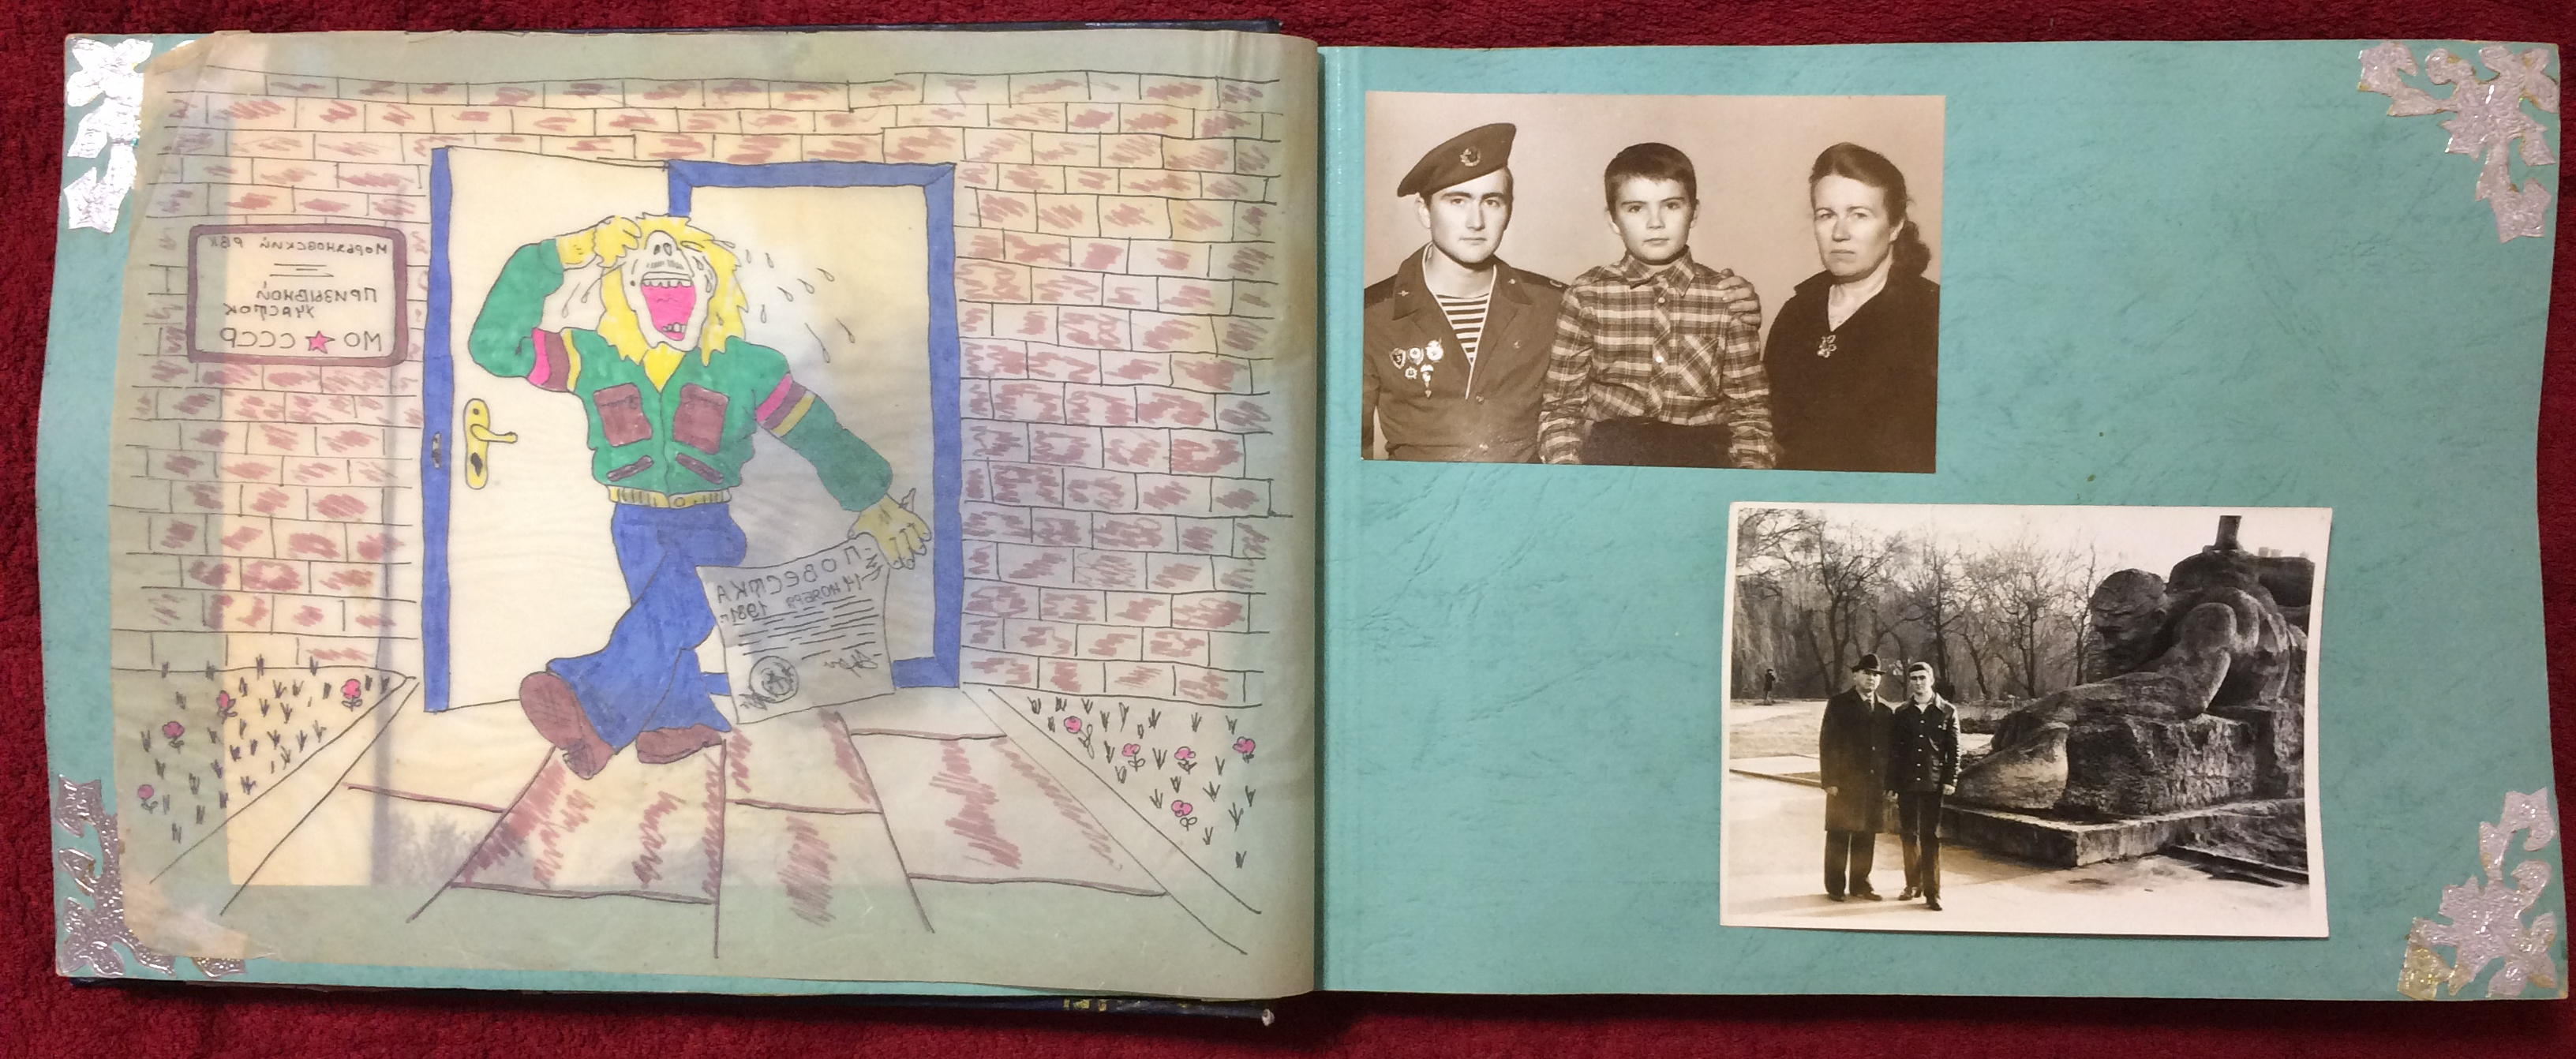 Марьяновский РВК
Призывной
участок
МО СССР
ПОВЕСТКА
14 ноября
1981г